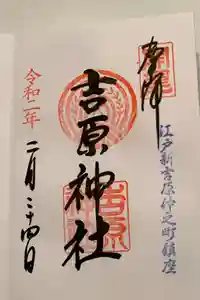 奉拝
江戸新吉原仲之町鎮座
吉原神社
令和二年
二月二十四日